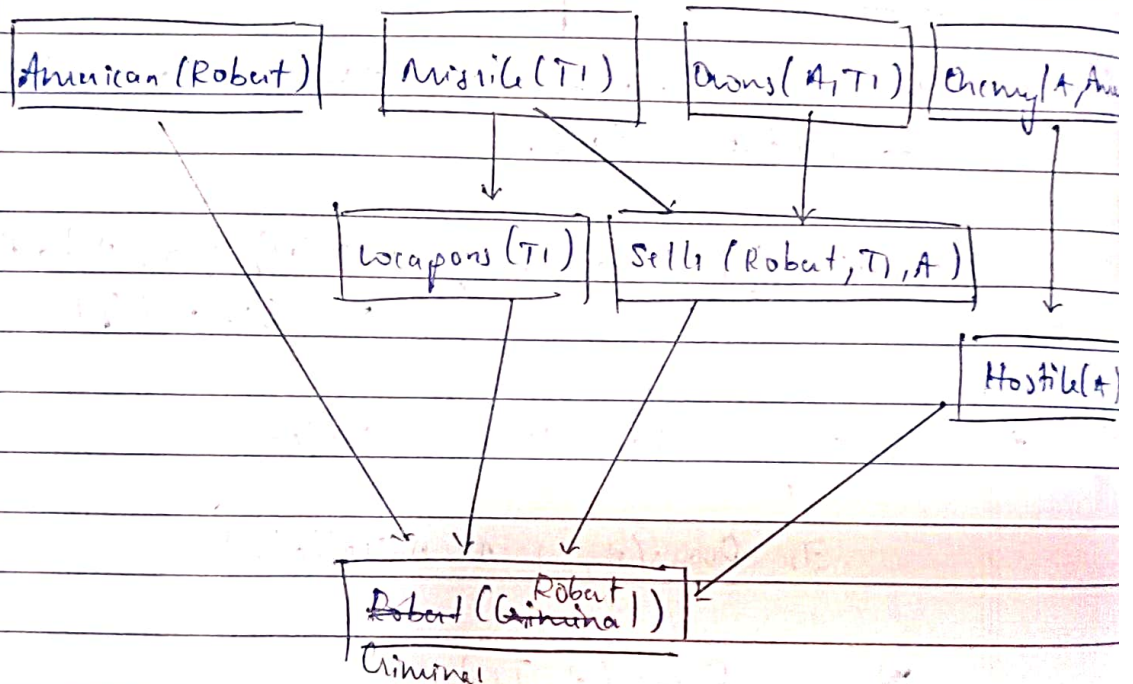 American (Robert)
Missile (T1)
Owns (A, T1)
Enemy (A, Ame
Weapons (T1)
Sells (Robert, T1, A)
Hostile (A)
Robert
Robert (Criminal)
Criminal